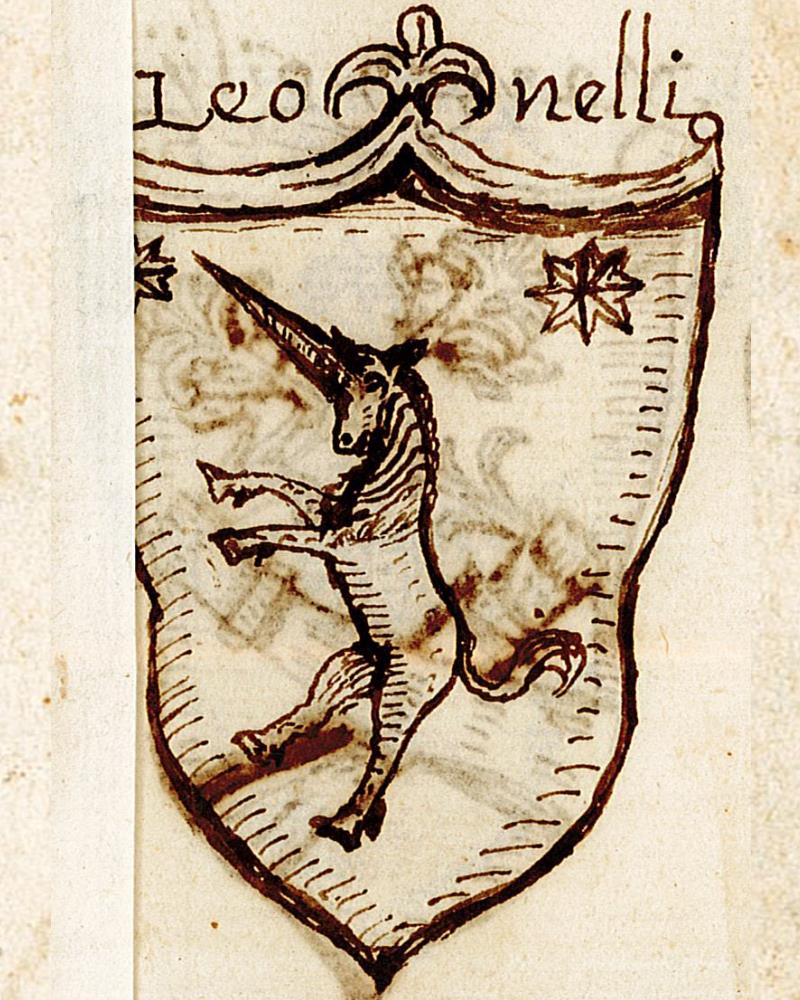 Leo nelli